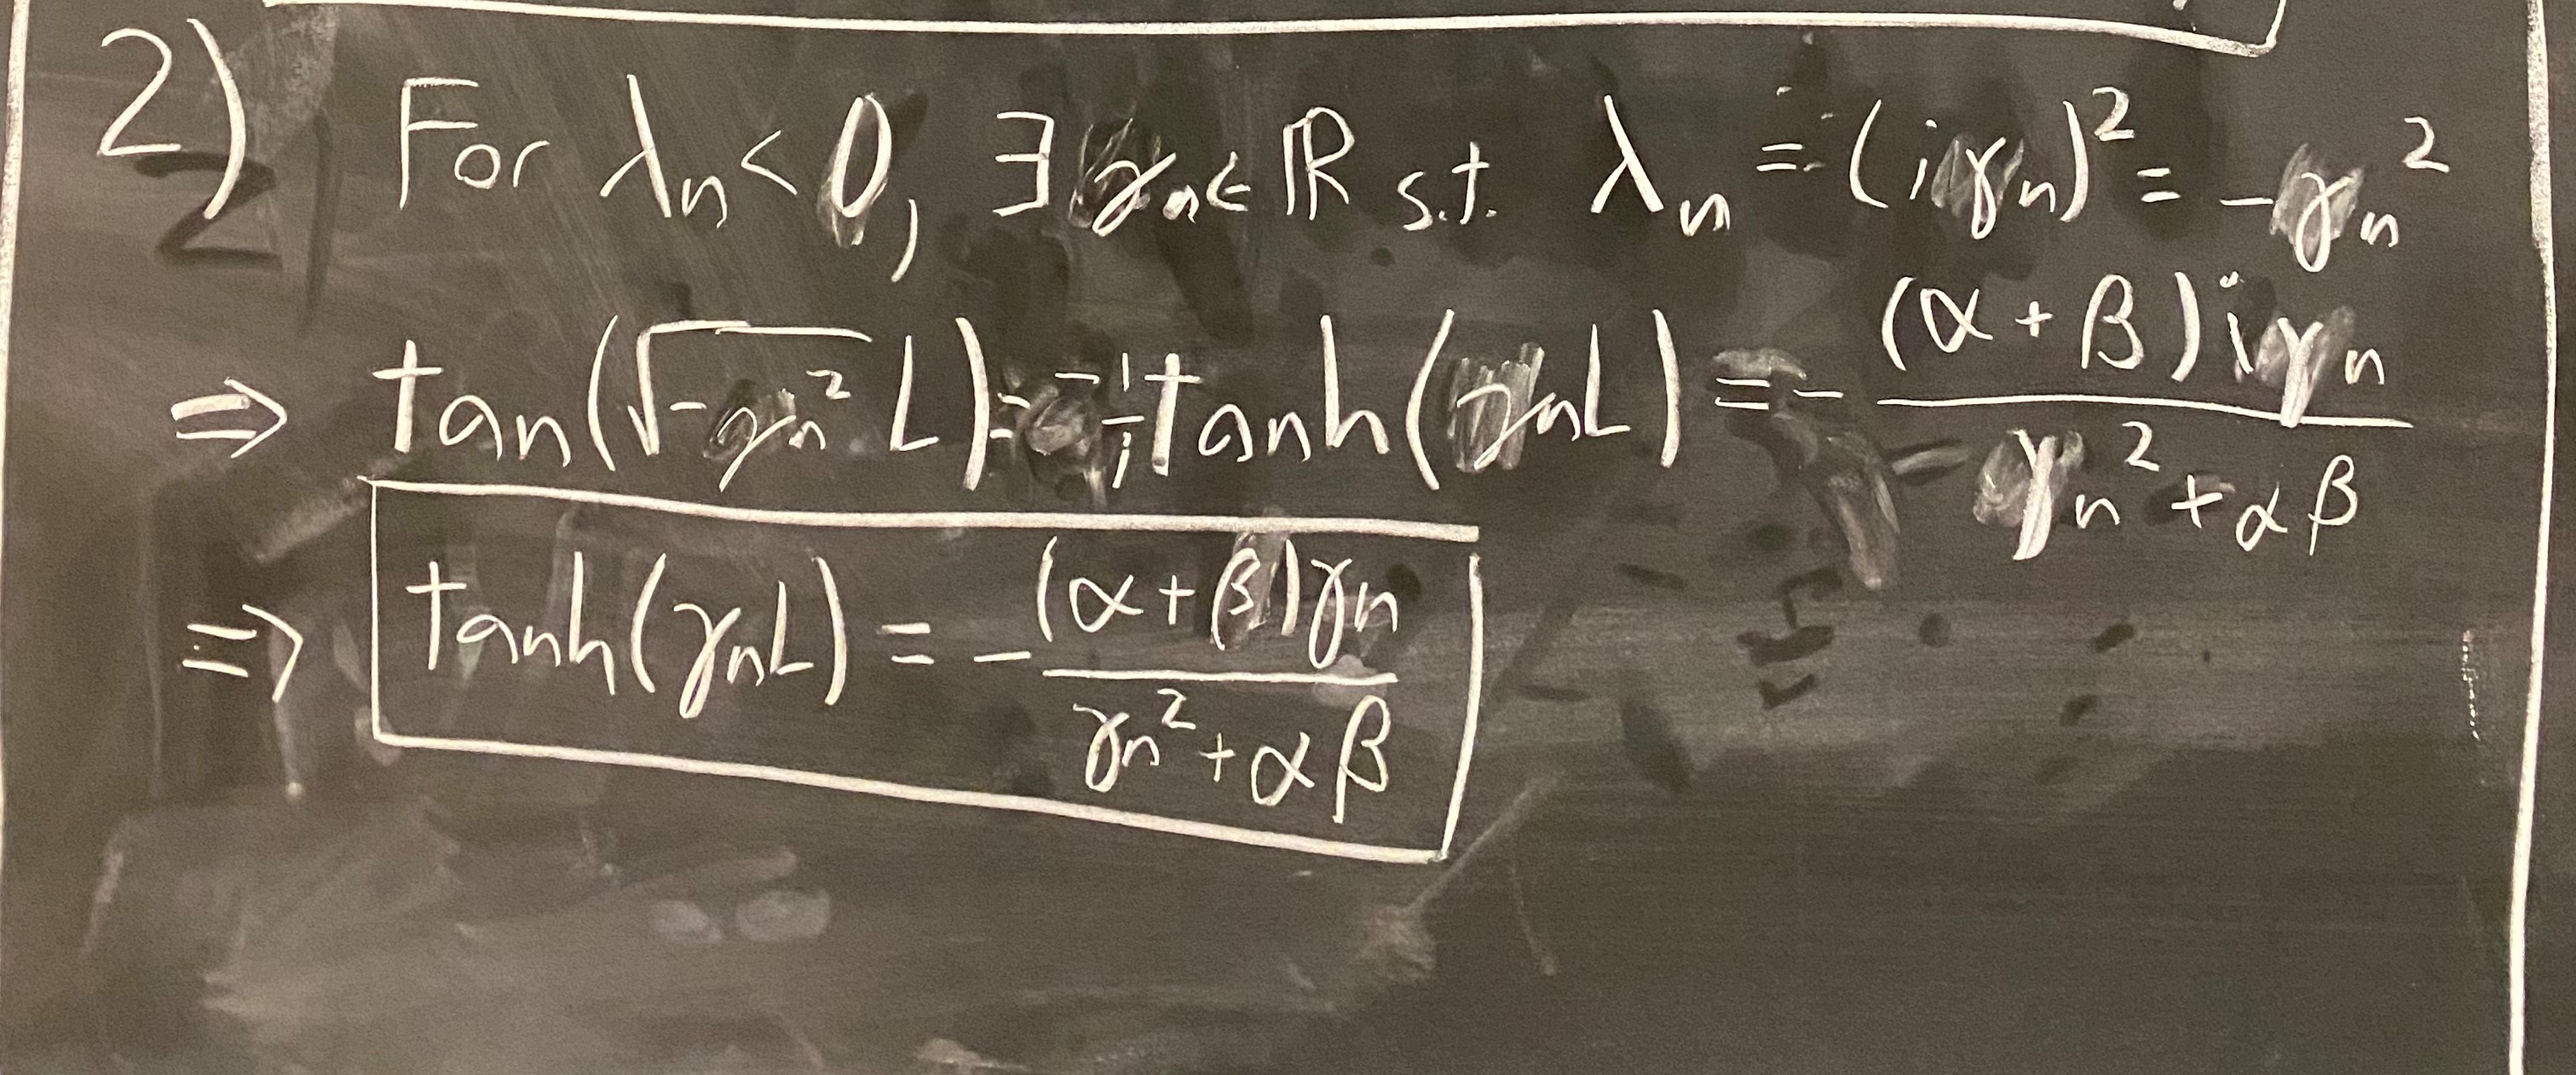 2) For λₙ < 0, ∃ γₙ ∈ ℝ s.t. λₙ = (iγₙ)² = -γₙ²
⇒ tan(√(-γₙ²) L) = -1/i tanh(γₙL) = - (α + β)iγₙ / (γₙ² + αβ)
⇒ tanh(γₙL) = - (α + β)γₙ / (γₙ² + αβ)